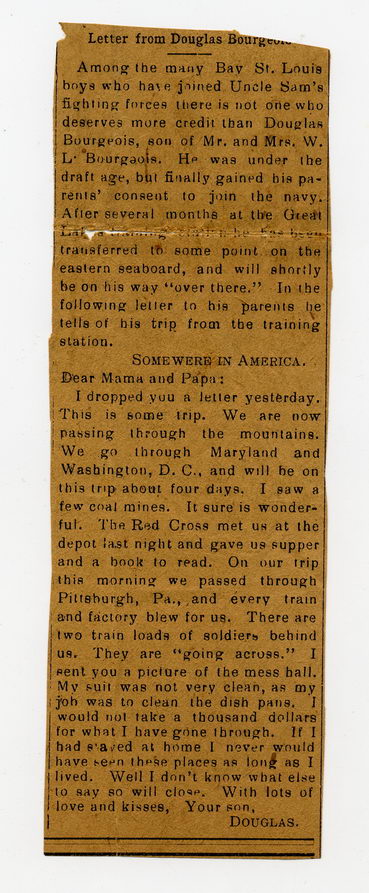 Letter from Douglas Bourgeois
Among the many Bay St. Louis
boys who have joined Uncle Sam's
fighting forces there is not one who
deserves more credit than Douglas
Bourgeois, son of Mr. and Mrs. W.
L. Bourgeois. He was under the
draft age, but finally gained his pa-
rents' consent to join the navy.
After several months at the Great
Lakes training station he has been
transferred to some point on the
eastern seaboard, and will shortly
be on his way "over there." In the
following letter to his parents he
tells of his trip from the training
station.
SOMEWERE IN AMERICA.
Dear Mama and Papa:
I dropped you a letter yesterday.
This is some trip. We are now
passing through the mountains.
We go through Maryland and
Washington, D. C., and will be on
this trip about four days. I saw a
few coal mines. It sure is wonder-
ful. The Red Cross met us at the
depot last night and gave us supper
and a book to read. On our trip
this morning we passed through
Pittsburgh, Pa., and every train
and factory blew for us. There are
two train loads of soldiers behind
us. They are "going across." I
sent you a picture of the mess hall.
My suit was not very clean, as my
job was to clean the dish pans. I
would not take a thousand dollars
for what I have gone through. If I
had stayed at home I never would
have seen these places as long as I
lived. Well I don't know what else
to say so will close. With lots of
love and kisses, Your son,
DOUGLAS.